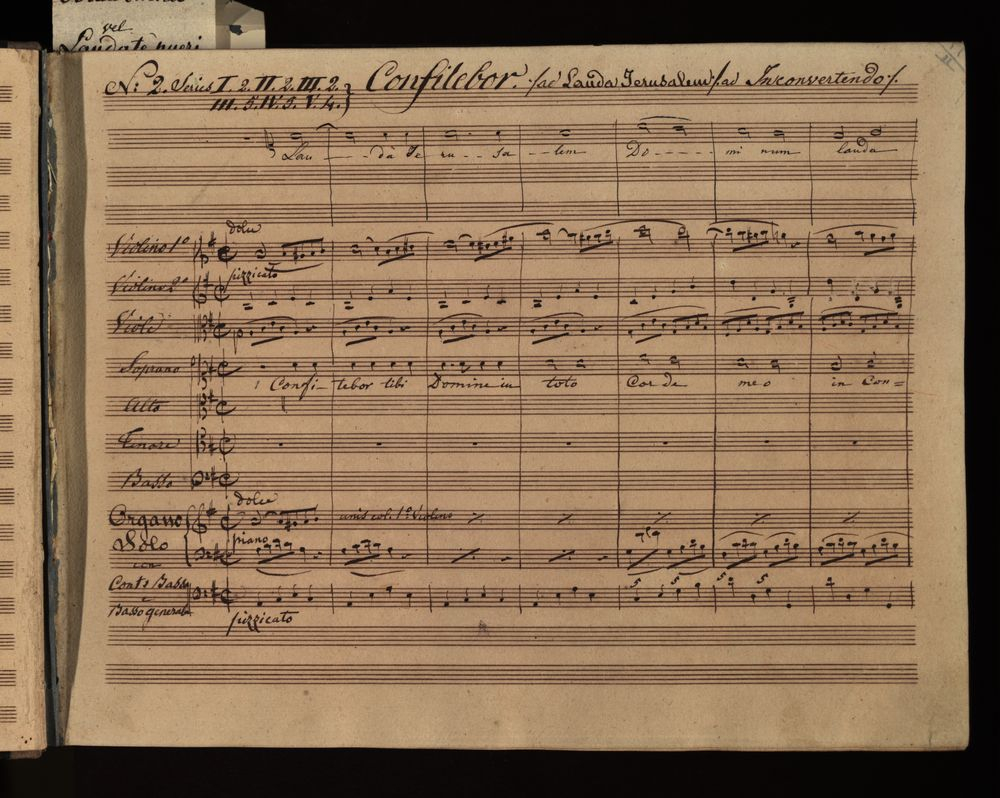 vel
Laudate pueri
N: 2. Series I. 2. II. 2. III. 2. Confitebor. /: ad Lauda Jerusalem :/: ad Inconvertendo /.
III. 5. IV. 3. V. 4. }
Lau - - - da Je ru - - sa - - lem Do - - - - - mi num lauda
dolce
Violino 1º
pizzicato
Violino 2º
Viole
p
Soprano
Confi- tebor tibi Domine in toto Corde meo in Con=
Alto
Tenore
Basso
dolce
Organo unis col. 1º Violino
piano
Solo
Contr Basso
Basso generale
pizzicato